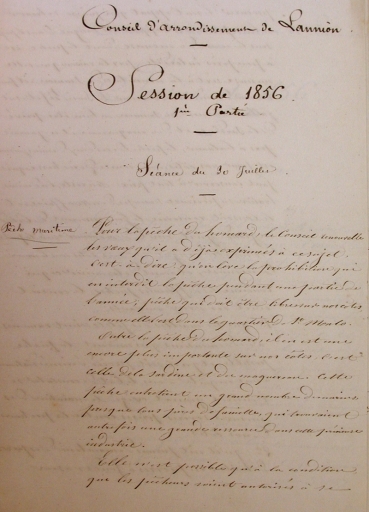 Conseil d'arrondissement de Lannion.
Session de 1856.
1ère Partie
Séance du 30 Juillet
Pêche maritime
Pour la pêche du homard, le Conseil renouvelle
les vœux qu'il a déjà exprimés à ce sujet,
c'est-à-dire qu'on lève la prohibition qui
en interdit la pêche pendant une partie de
l'année, pêche qui doit être libre sur nos côtes
comme elle l'est dans le quartier de St Malo.
Outre la pêche du homard, il en est une
encore plus importante sur nos côtes. C'est
celle de la sardine et du maquereau. Cette
pêche entretient un grand nombre de marins
presque tous pères de famille, qui trouvaient
autrefois une grande ressource dans cette précieuse
industrie.
Elle n'est possible qu'à la condition
que les pêcheurs soient autorisés à se